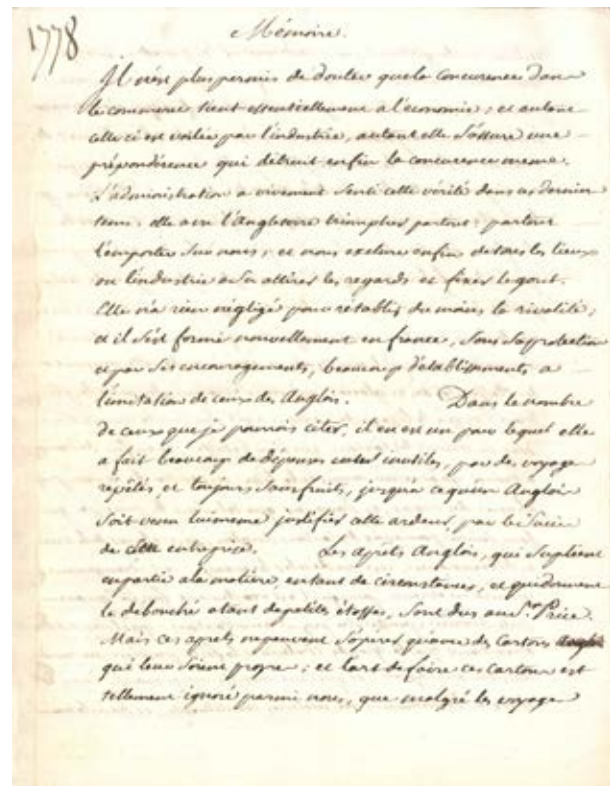 1778
Mémoire.
Il n'est plus permis de douter que la concurence dans
le commerce tient essentiellement a l'économie; et autant
celle ci est voilée par l'industrie, autant elle s'assure une
prépondérence qui détruit enfin la concurence meme.
L'administration a vivement senti cette vérité dans ces derniers
tems. elle a vu l'Angleterre triompher partout, partout
l'emporter sur nous, et nous exclure enfin de tous les lieux
ou l'industrie a su attirer les regards et fixer le gout.
Elle n'a rien négligé pour rétablir du moins la rivalité,
et il s'est formé nouvellement en france, sous sa protection
et par ses encouragements, beaucoup d'établissements a
l'imitation de ceux des Anglois. Dans le nombre
de ceux que je pourrois citer, il en est un pour lequel elle
a fait beaucoup de dépenses inutiles, par des voyages
répétés, et toujours sans fruits, jusqu'a ce qu'un Anglois
soit venu luimeme justifier cette ardeur, par le
de cette entreprise. Les aprêts Anglois, qui supléent
en partie a la matière, en tant de circonstances, et qui donnent
le debouché a tant de petites étoffes, sont dus au Sr. Price.
Mais ces aprets ne peuvent s'opérer qu'avec des cartons
qui leur soient propre; et l'art de faire ces cartons est
tellement ignoré parmi nous, que malgré les voyages